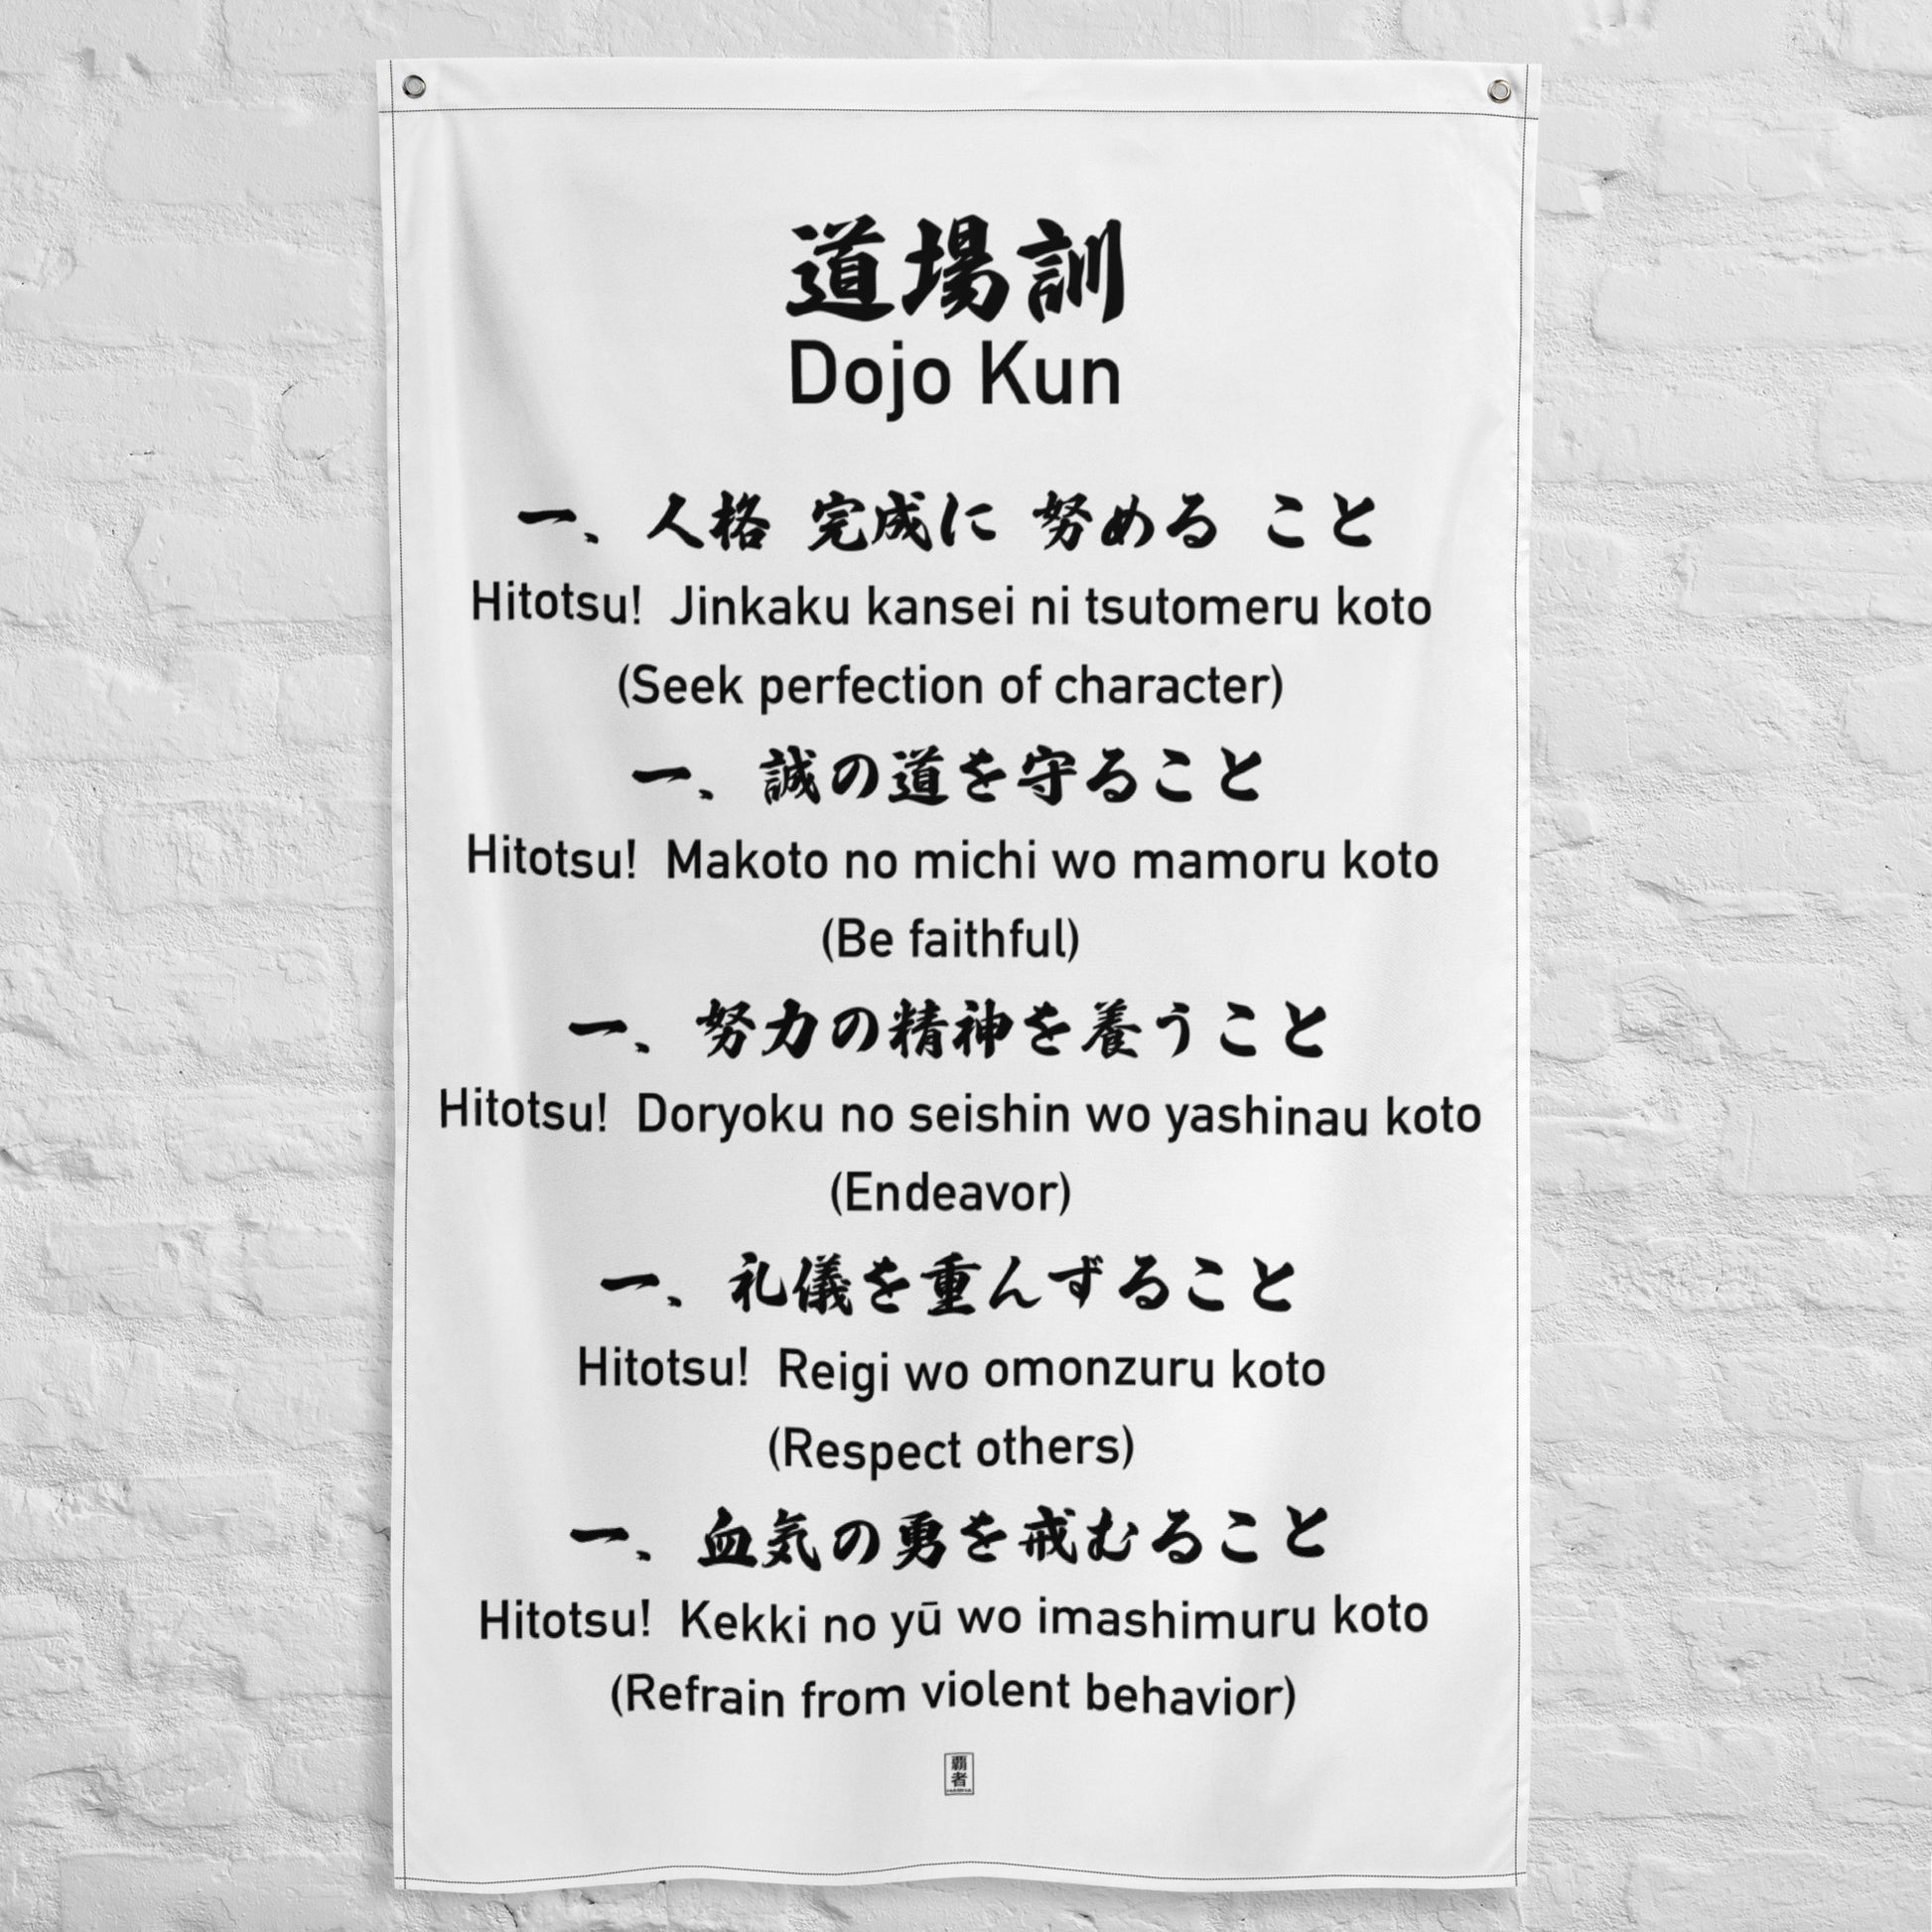 道場訓
Dojo Kun
一、人格 完成に 努める こと
Hitotsu! Jinkaku kansei ni tsutomeru koto
(Seek perfection of character)
一、誠の道を守ること
Hitotsu! Makoto no michi wo mamoru koto
(Be faithful)
一、努力の精神を養うこと
Hitotsu! Doryoku no seishin wo yashinau koto
(Endeavor)
一、礼儀を重んずること
Hitotsu! Reigi wo omonzuru koto
(Respect others)
一、血気の勇を戒むること
Hitotsu! Kekki no yū wo imashimuru koto
(Refrain from violent behavior)
覇者